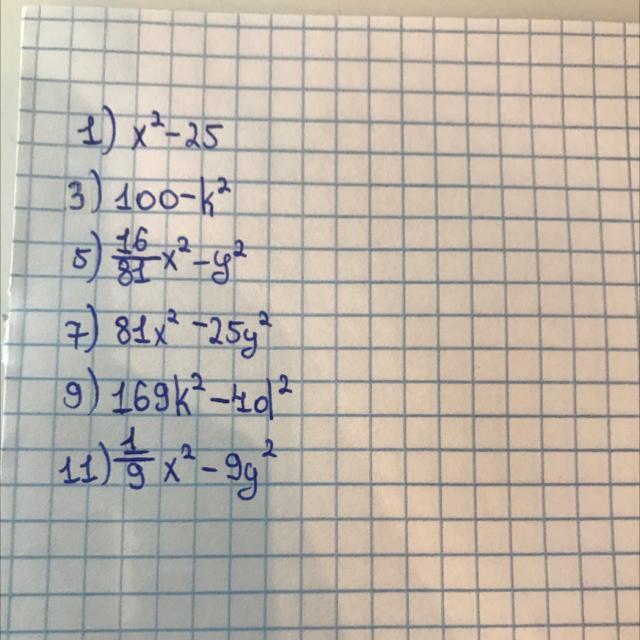 1) x²-25
3) 100-k²
5) 16/81 x²-y²
7) 81x²-25y²
9) 169k²-4d²
11) 1/9 x²-9y²